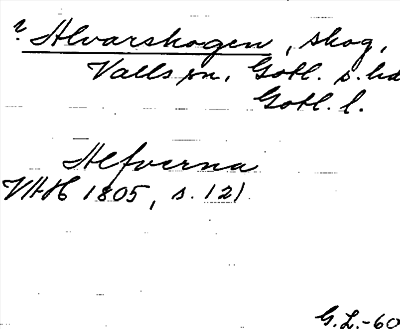 ? Alvarskogen, skog,
Valls sn, Gotl. s. hd
Gotl. l.
Alfverna
VHH 1805, s. 121
G.L.-60